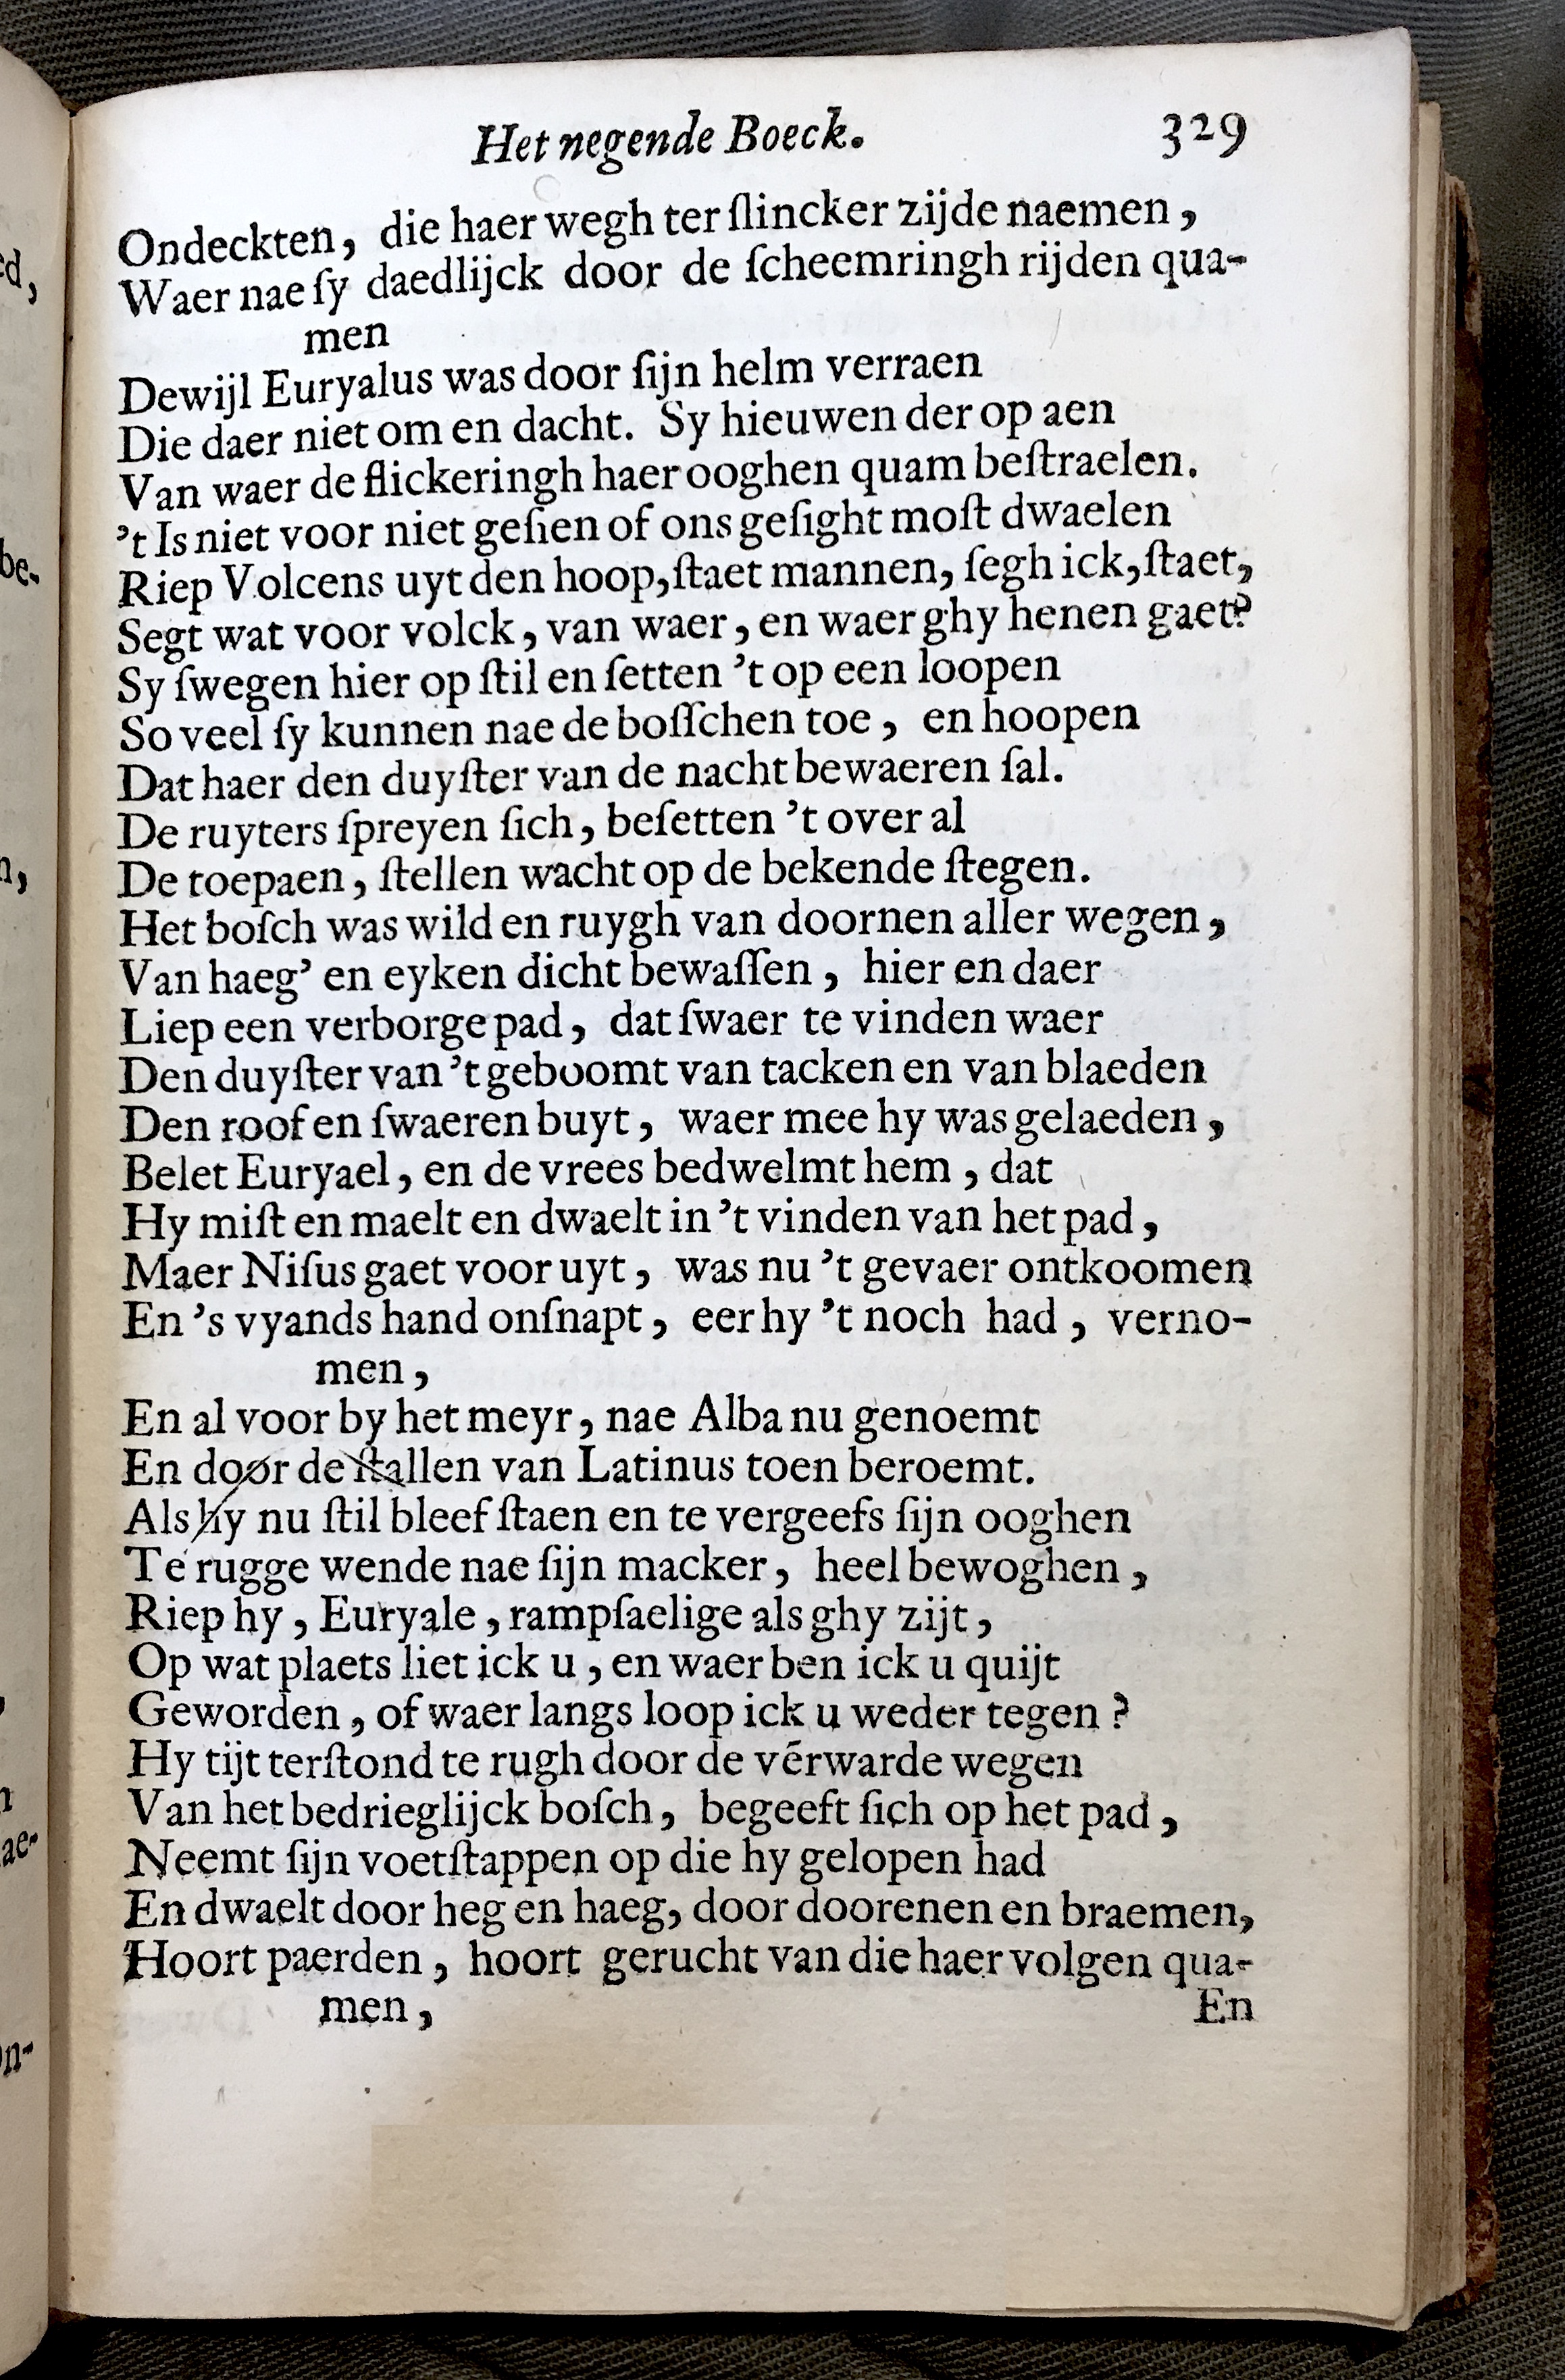 Het negende Boeck. 329
Ondeckten, die haer wegh ter ſlincker zijde naemen,
Waer nae ſy daedlijck door de ſcheemringh rijden qua-
men
Dewijl Euryalus was door ſijn helm verraen
Die daer niet om en dacht. Sy hieuwen der op aen
Van waer de flickeringh haer ooghen quam beſtraelen.
't Is niet voor niet geſien of ons geſight moſt dwaelen
Riep Volcens uyt den hoop, ſtaet mannen, ſegh ick, ſtaet,
Segt wat voor volck, van waer, en waer ghy henen gaet?
Sy ſwegen hier op ſtil en ſetten 't op een loopen
So veel ſy kunnen nae de boſſchen toe, en hoopen
Dat haer den duyſter van de nacht bewaeren ſal.
De ruyters ſpreyen ſich, beſetten 't over al
De toepaen, ſtellen wacht op de bekende ſtegen.
Het boſch was wild en ruygh van doornen aller wegen,
Van haeg' en eyken dicht bewaſſen, hier en daer
Liep een verborge pad, dat ſwaer te vinden waer
Den duyſter van 't geboomt van tacken en van blaeden
Den roof en ſwaeren buyt, waer mee hy was gelaeden,
Belet Euryael, en de vrees bedwelmt hem, dat
Hy miſt en maelt en dwaelt in 't vinden van het pad,
Maer Niſus gaet voor uyt, was nu 't gevaer ontkoomen
En 's vyands hand onſnapt, eer hy 't noch had, verno-
men,
En al voor by het meyr, nae Alba nu genoemt
En door de ſtallen van Latinus toen beroemt.
Als hy nu ſtil bleef ſtaen en te vergeefs ſijn ooghen
Te rugge wende nae ſijn macker, heel bewoghen,
Riep hy, Euryale, rampſaelige als ghy zijt,
Op wat plaets liet ick u, en waer ben ick u quijt
Geworden, of waer langs loop ick u weder tegen?
Hy tijt terſtond te rugh door de vērwarde wegen
Van het bedrieglijck boſch, begeeft ſich op het pad,
Neemt ſijn voetſtappen op die hy gelopen had
En dwaelt door heg en haeg, door doorenen en braemen,
Hoort paerden, hoort gerucht van die haer volgen qua-
men, En
ed,
be-
n,
ae-
on-